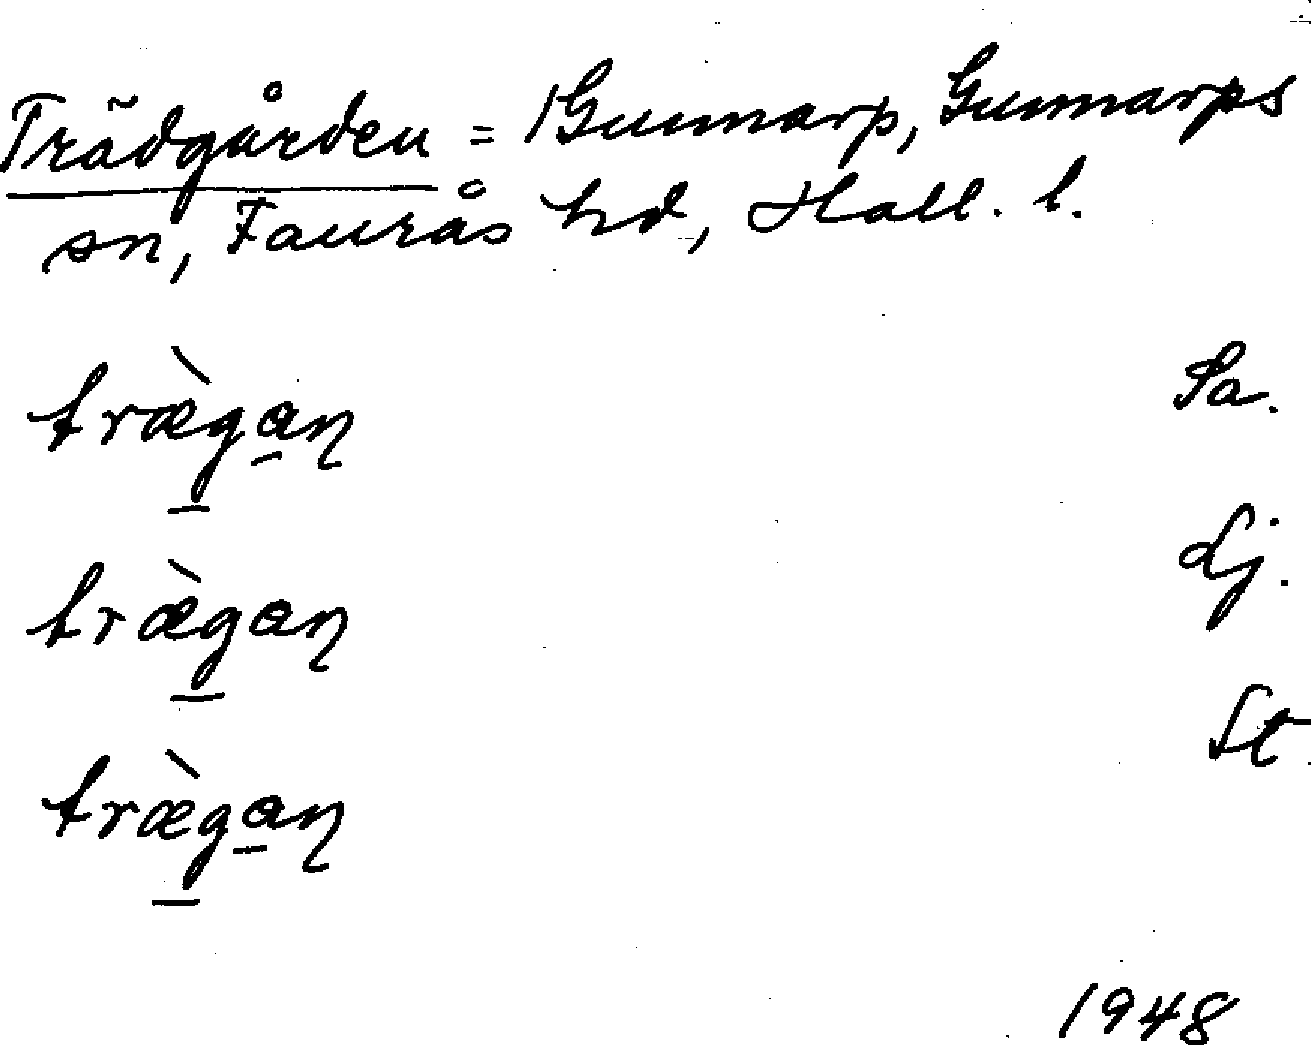 Trädgården = 1 Gunnarp, Gunnarps
sn, Faurås hd, Hall. l.
træ̀gan̡ Sa.
træ̀gan̡ Lj.
træ̀gan̡ St.
1948